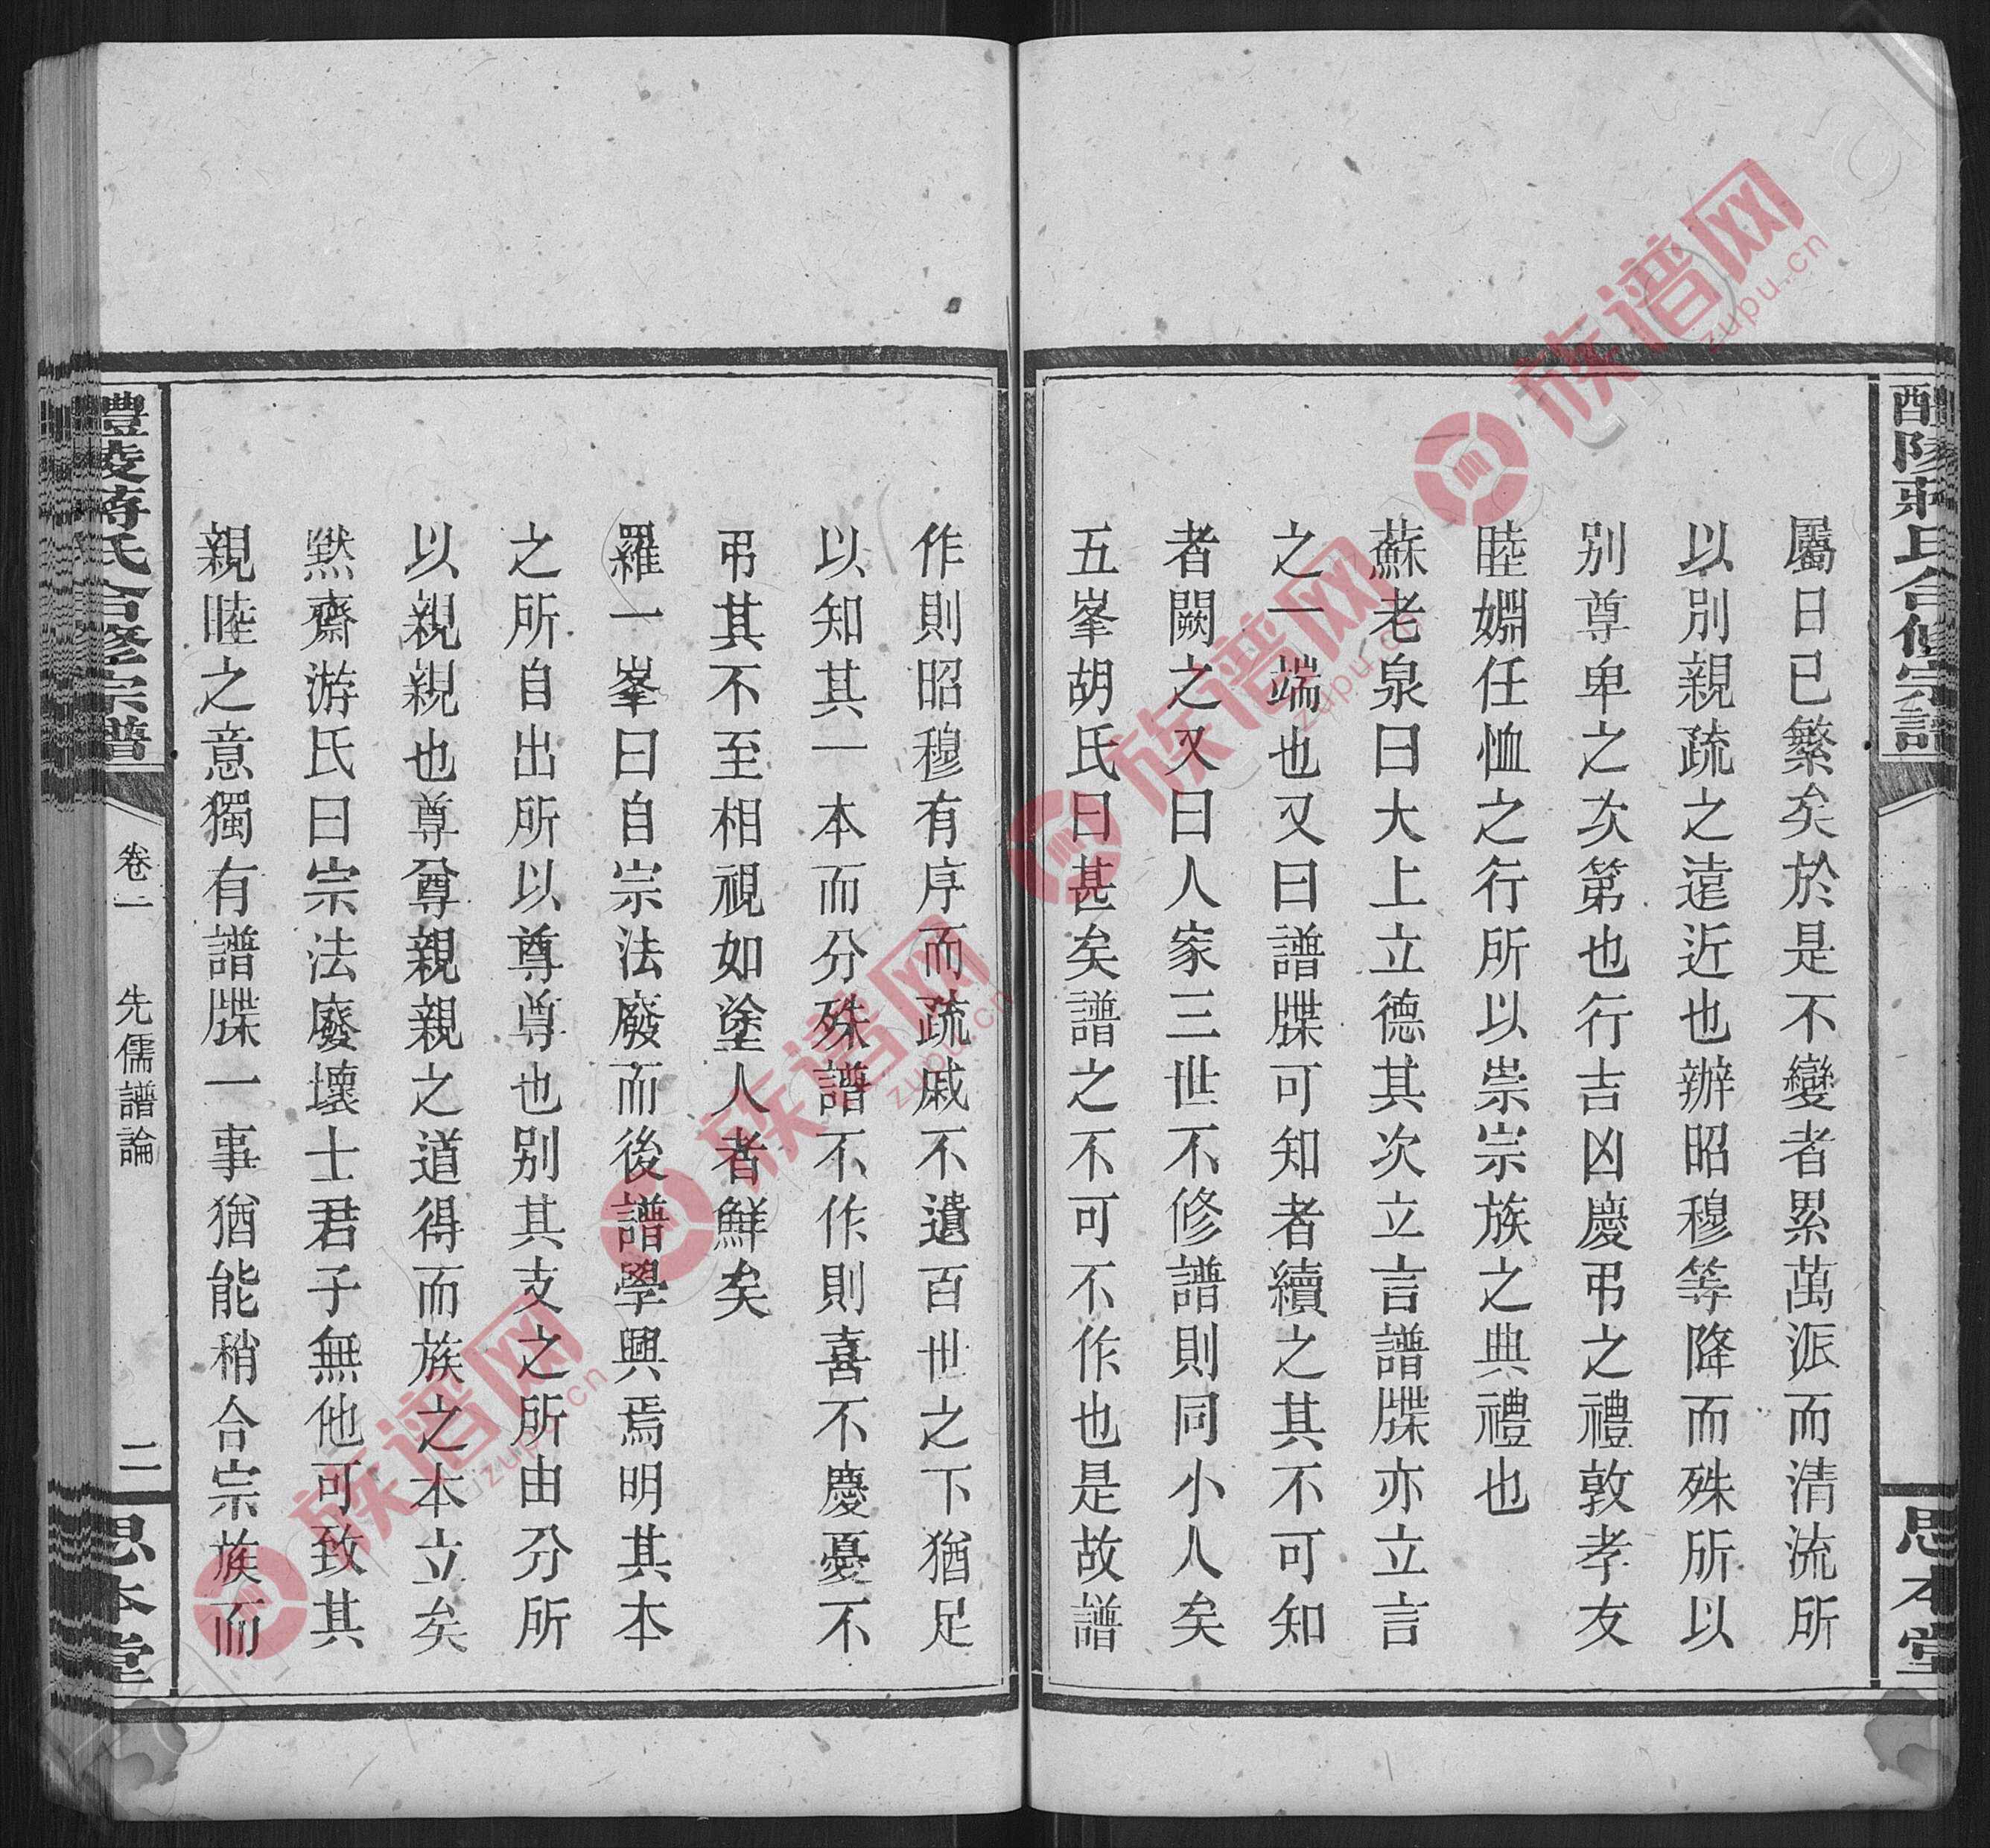 醴陵蔣氏合修宗譜
思本堂
屬日已繁矣於是不變者累萬派而清流所
以別親疏之遠近也辦昭穆等降而殊所以
別尊卑之次第也行吉凶慶弔之禮敦孝友
睦婣任恤之行所以崇宗族之典禮也
蘇老泉曰大上立德其次立言譜牒亦立言
之一端也又曰譜牒可知者續之其不可知
者闕之又曰人家三世不修譜則同小人矣
五峯胡氏曰甚矣譜之不可不作也是故譜
作則昭穆有序而疏戚不遺百世之下猶足
以知其一本而分殊譜不作則喜不慶憂不
弔其不至相視如塗人者鮮矣
羅一峯曰自宗法廢而後譜學興焉明其本
之所自出所以尊尊也別其支之所由分所
以親親也尊尊親親之道得而族之本立矣
默齋游氏曰宗法廢壞士君子無他可致其
親睦之意獨有譜牒一事猶能稍合宗族而
醴陵蔣氏合修宗譜
卷一 先儒譜論
二
思本堂
族谱网
zupu.cn
族谱网
zupu.cn
族谱网
zupu.cn
族谱网
zupu.cn